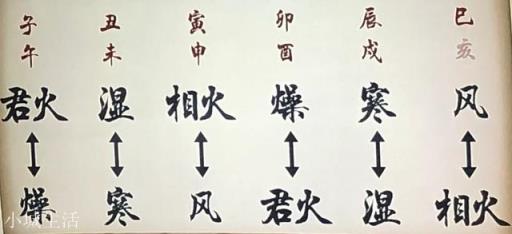 子 丑 寅 卯 辰 巳
午 未 申 酉 戌 亥
君火 湿 相火 燥 寒 风
燥 寒 风 君火 湿 相火
小城生活